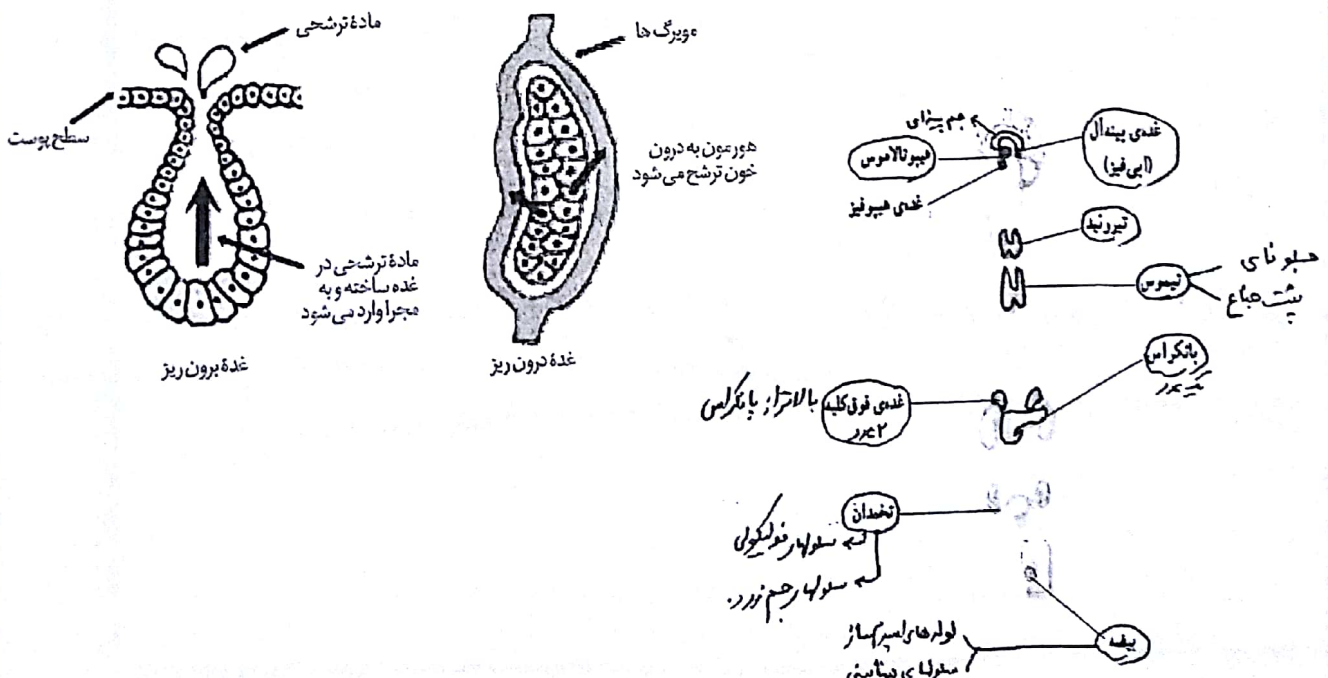 مادهٔ ترشحی
سطح پوست
مادهٔ ترشحی در
غده ساخته و به
مجرا وارد می‌شود
غدهٔ برون ریز
مویرگ ها
هورمون به درون
خون ترشح می‌شود
غدهٔ درون ریز
جسم پینه‌ای
غده‌ی پینه‌آل
(اپی فیز)
هیپوتالاموس
غده‌ی هیپوفیز
تیروئید
تیموس
جلو نای
پشت جناغ
پانکراس
یک عدد
غده‌ی فوق کلیه
۲ عدد
بالاتر از پانکراس
تخمدان
سلولهای فولیکولی
سلولهای جسم زرد
بیضه
لوله‌های اسپرم ساز
سلولهای بینابینی